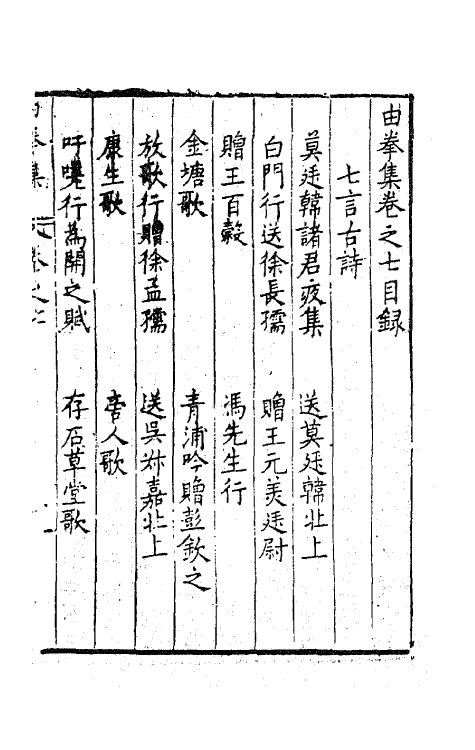 由拳集卷之七目録
七言古詩
莫廷韓諸君夜集 送莫廷韓北上
白門行送徐長孺 贈王元美廷尉
贈王百穀 馮先生行
金塘歌 青浦吟贈彭欽之
放歌行贈徐孟孺 送吳叔嘉北上
康生歌 人歌
吁嗟行為開之賦 存石草堂歌
由拳集 卷之七 一